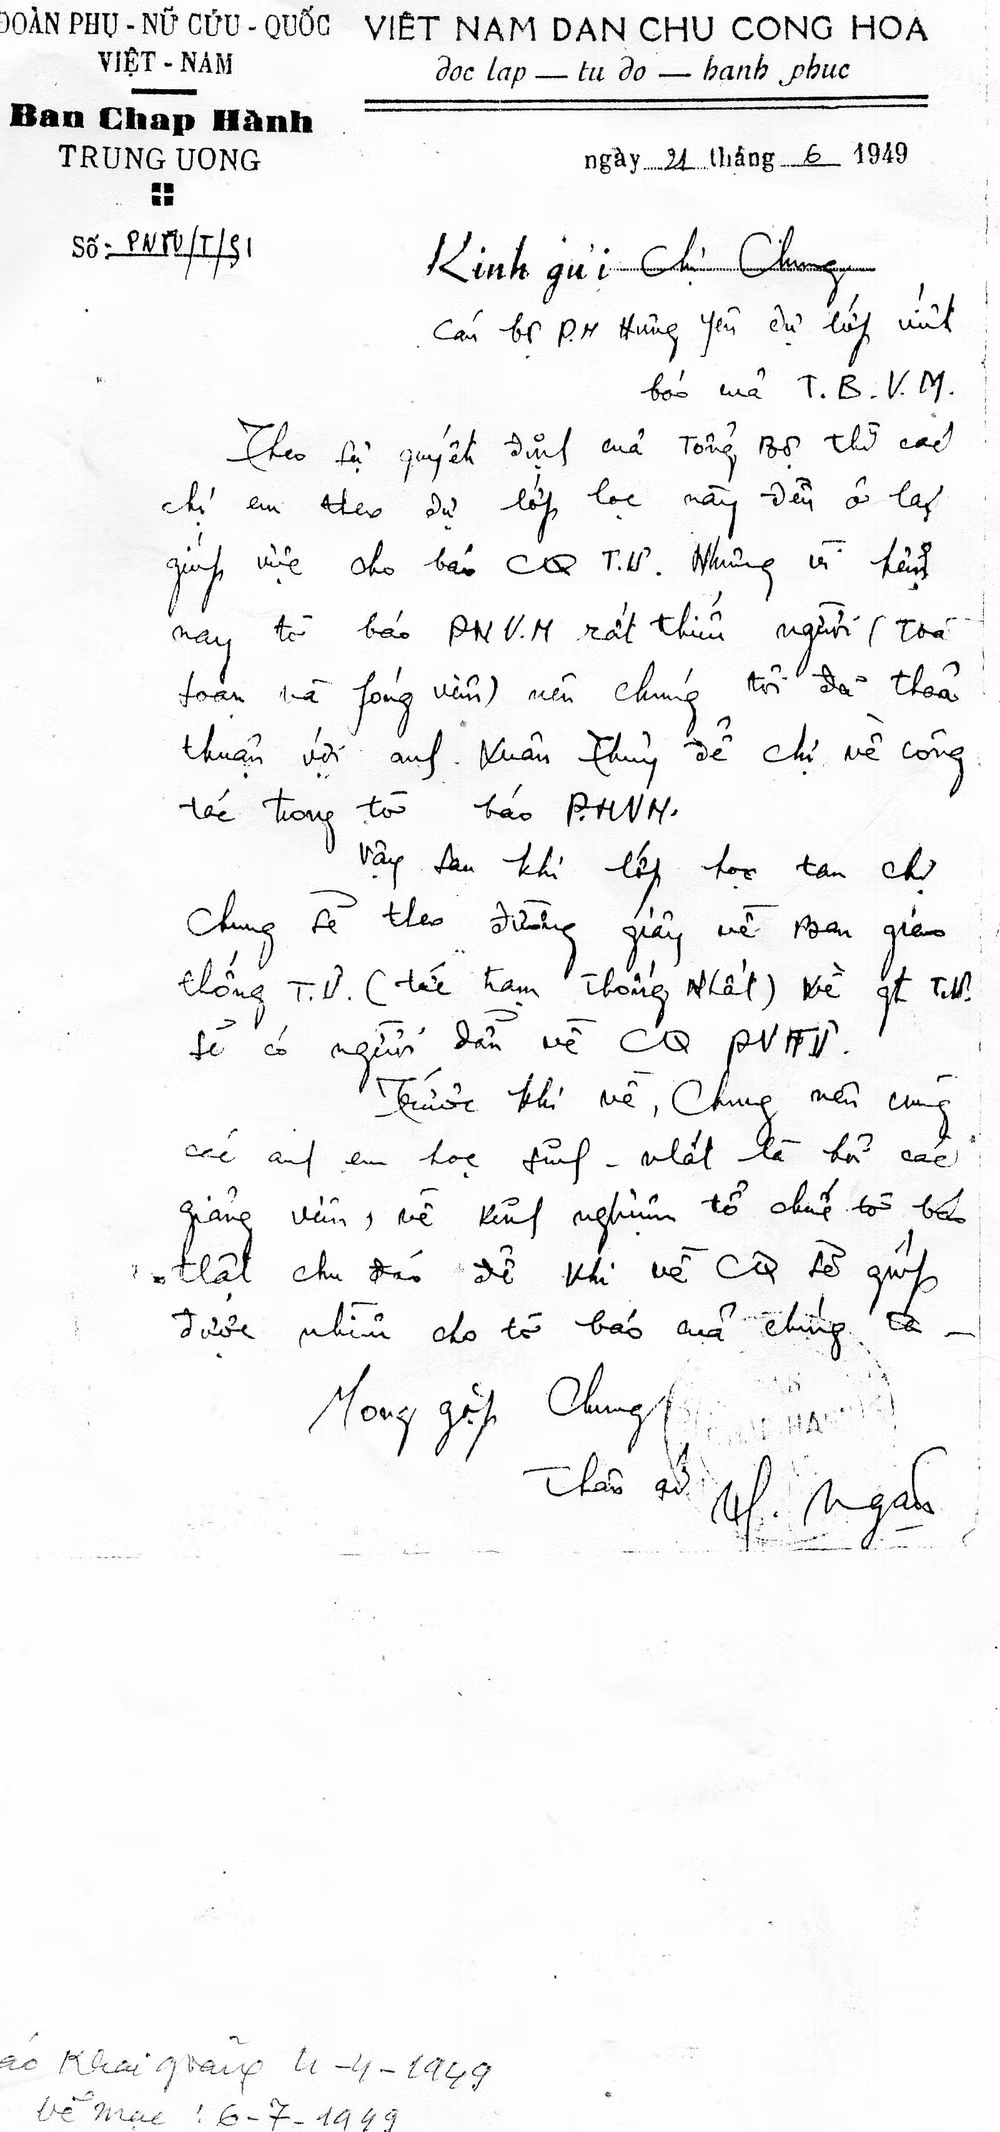 ĐOÀN PHỤ - NỮ CỨU - QUỐC
VIỆT - NAM
Ban Chap Hành
TRUNG UONG
Số: PNTV/T/S1
VIÊT NAM DAN CHU CONG HOA
doc lap — tu do — hanh phuc
ngày 21 tháng 6 1949
Kính gửi Chị Chung
Cán bộ P.N Hưng Yên dự lớp viết
báo của T.B.V.M.
Theo sự quyết định của Tổng Bộ thì các
chị em theo dự lớp học này đều ở lại
giúp việc cho báo CQ T.V. Nhưng vì hiện
nay tờ báo PNV.N rất thiếu người (toà
soạn và fóng viên) nên chúng tôi đã thoả
thuận với anh Xuân Thuỷ để chị về công
tác trong tờ báo P.NVN.
Vậy sau khi lớp học tan chị
Chung sẽ theo đường giây về Ban giao
thông T.V. (tức trạm Thống Nhất) Về gt T.V.
sẽ có người dẫn về CQ PNTV.
Trước khi về, Chung nên cùng
các anh em học sinh - nhất là hỏi các
giảng viên, về kinh nghiệm tổ chức tờ báo
thật chu đáo để khi về CQ sẽ giúp
được nhiều cho tờ báo của chúng ta _
Mong gặp Chung
Thân gửi
Ngân
Khai giảng 4-4-1949
bế mạc : 6-7-1949